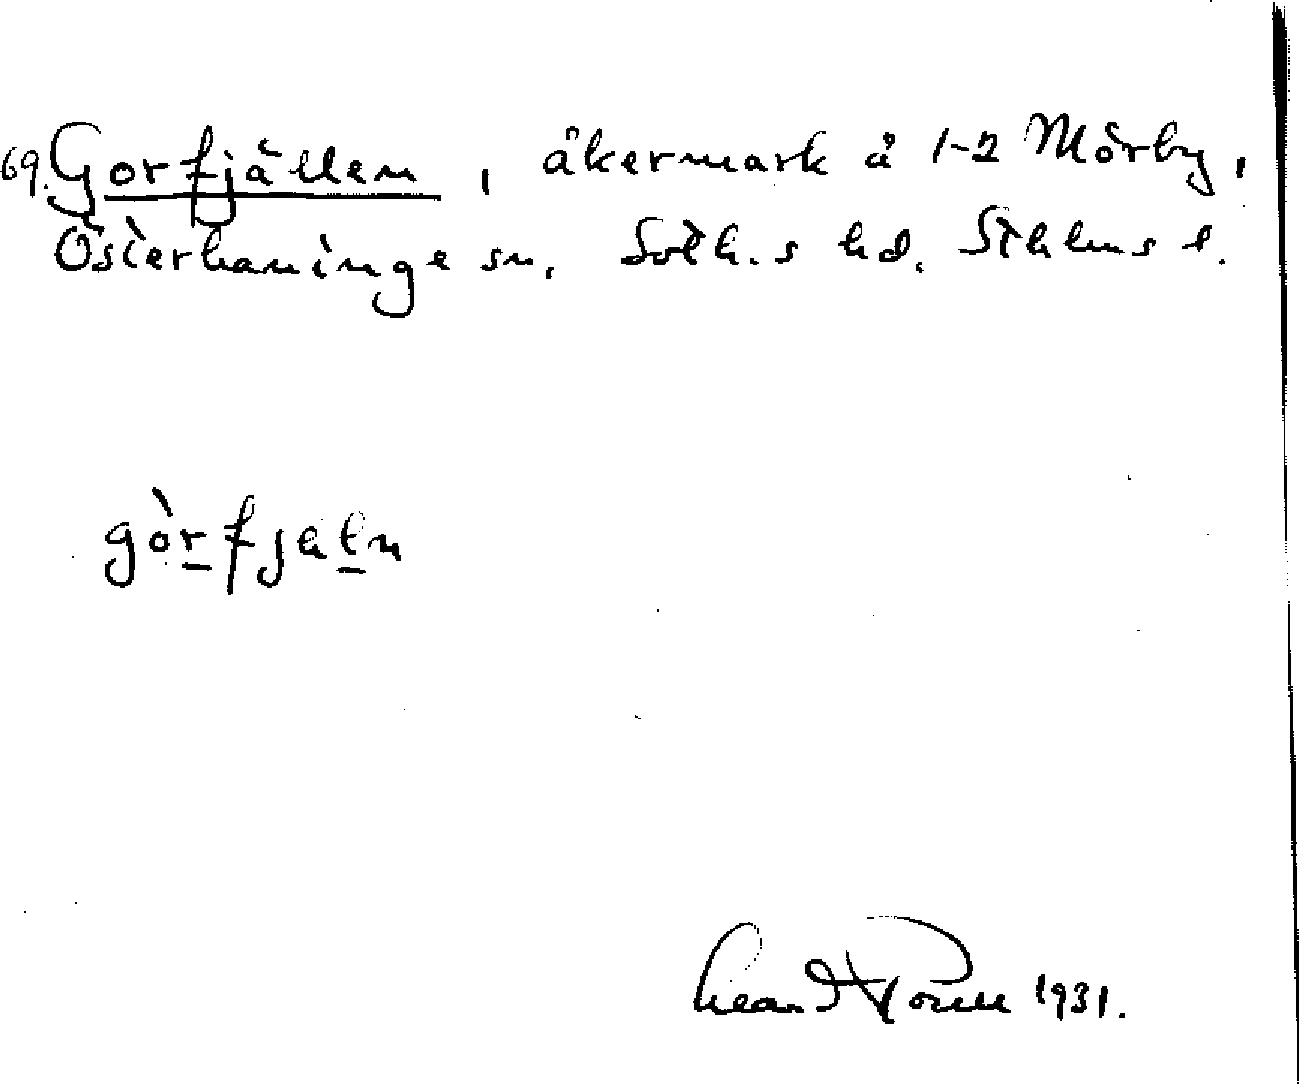 69. Gorfjällen, åkermark å 1-2 Mörby,
Österhaninge sn. Soth.s hd. Sthlms l.
gòrfjäln
1931.